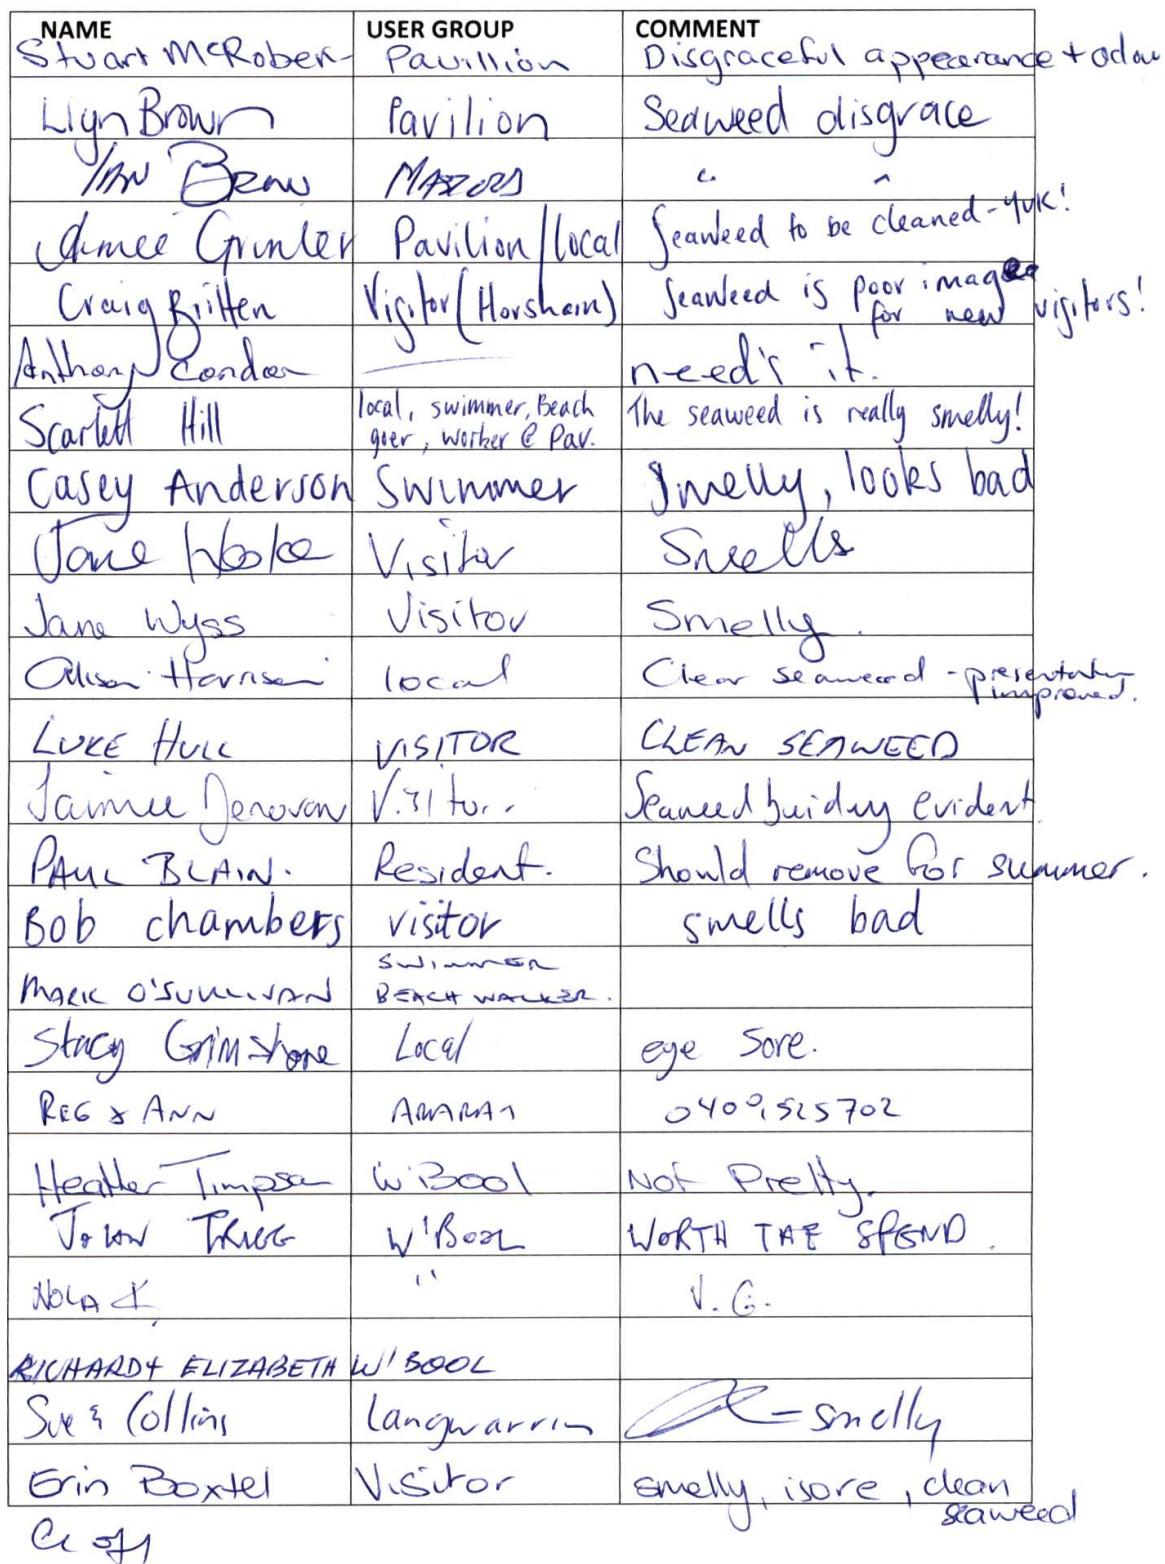 NAME USER GROUP COMMENT
Stuart McRober- Pavillion Disgraceful appearance + odou
Llyn Brown Pavilion Seaweed disgrace
IAN " "
Aimee Grinter Pavilion/local Seaweed to be cleaned - YUK!
Craig Britten Visitor (Horsham) Seaweed is poor image
for new visitors!
Anthony need's it.
Scarlett Hill local, swimmer, Beach The seaweed is really smelly!
goer, worker @ Pav.
Casey Anderson Swimmer Smelly, looks bad
Jane Visitor Smells
Jane Wyss Visitor Smelly.
Alison Harrison local Clear seaweed - presentation
improved.
LUKE HULL VISITOR CLEAN SEAWEED
Jaimee Donovan Visitor. Seaweed evident
PAUL BLAIN. Resident. Should remove for summer.
Bob chambers visitor smells bad
SWIMMER
MARK O'SULLIVAN BEACH WALKER.
Stacy Grimshore Local eye sore.
REG & ANN ARARAT 0409,525702
Heather Timpson W'Bool Not Pretty.
JOHN TRIGG W'BOOL WORTH THE SPEND.
NOLA " V.G.
RICHARD + ELIZABETH W'BOOL
Sue & Collins Langwarrin = smelly
Erin Boxtel Visitor smelly, isore, clean
seaweed